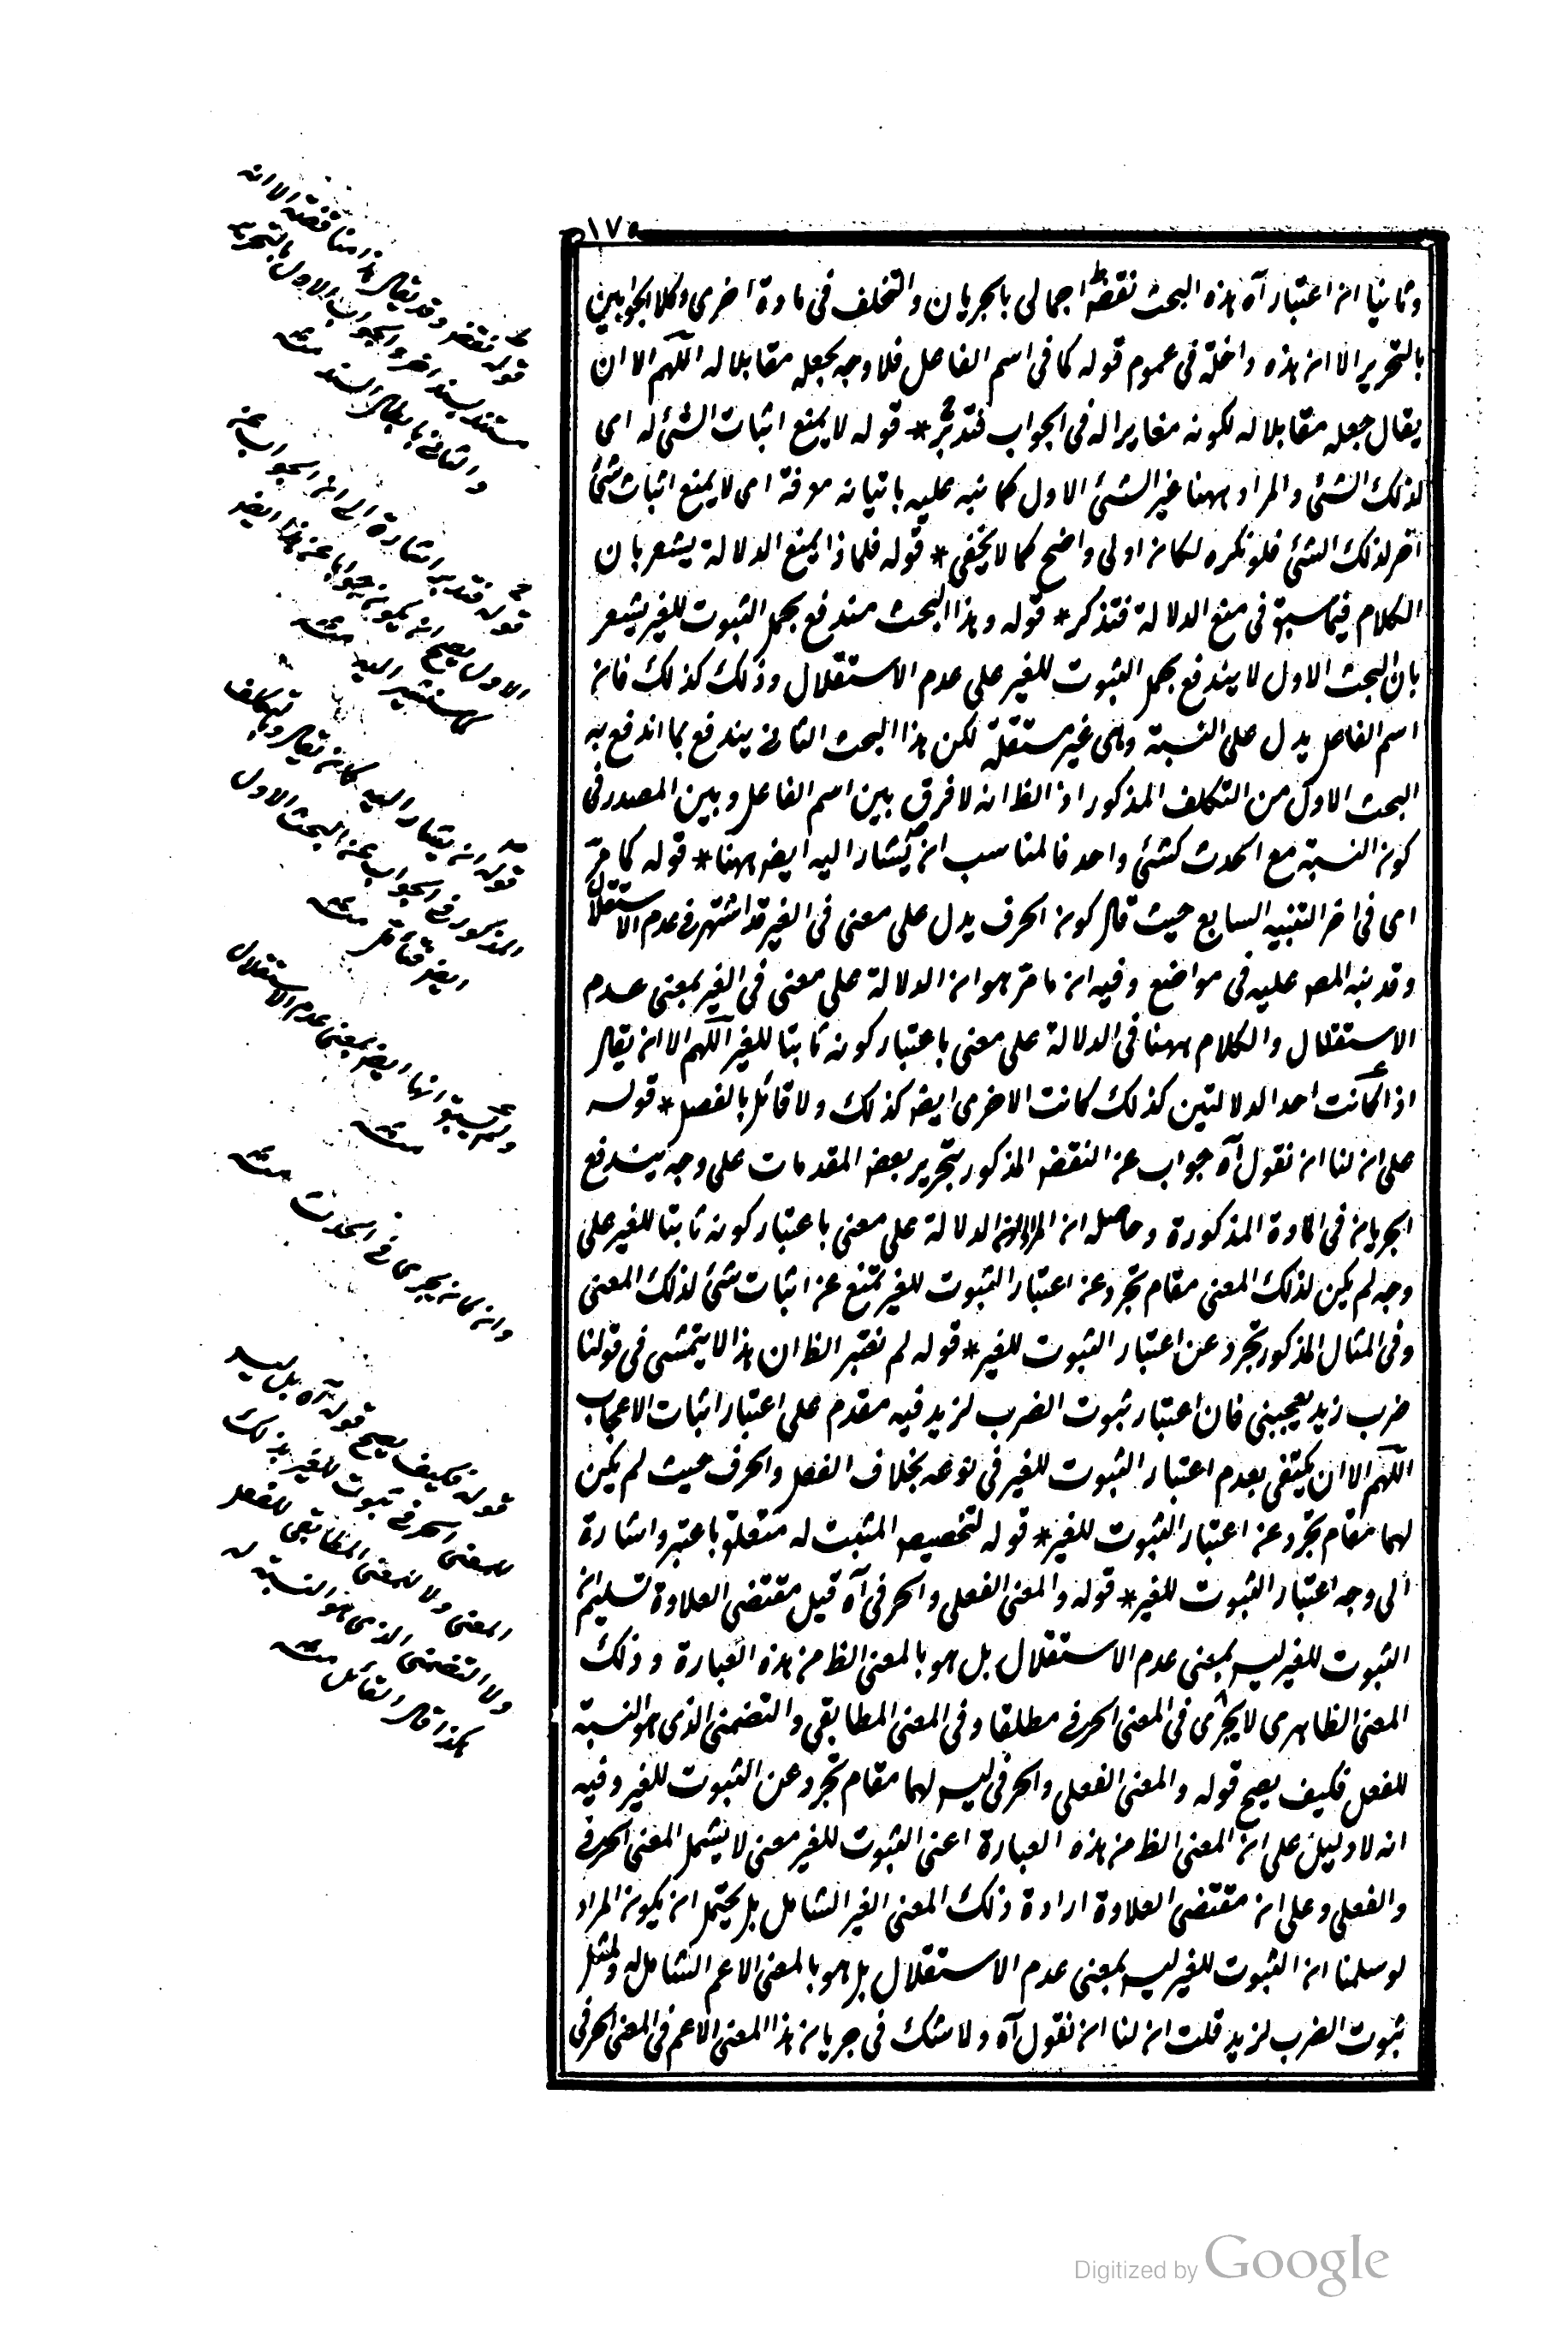 ١٧٥
وثانيا ان اعتبار آه هذه البحث نقض اجمالى بالجريان والتخلف فى مادة اخرى وكلا الجوابين
بالتحرير الا ان هذه داخلة فى عموم قوله كما فى اسم الفاعل فلا وجه لجعله مقابلا له اللّهم الا ان
يقال جعله مقابلا له لكونه مغايرا له فى الجواب فتدبّر * قوله لا يمنع اثبات الشئ له اى
لذلك الشئ والمراد ههنا غير الشئ الاول كما نبه عليه باتيانه معرفة اى لا يمنع اثبات شئ
آخر لذلك الشئ فلو نكره لكان اولى واضح كما لا يخفى * قوله فلماذا يمنع الدلالة يشعر بان
الكلام فيما سبق فى منع الدلالة فتذكر * قوله وهذا البحث مندفع بحمل الثبوت للغير يشعر
بان البحث الاول لا يندفع بحمل الثبوت للغير على عدم الاستقلال وذلك كذلك فان
اسم الفاعل يدل على النسبة وهى غير مستقلة لكن هذا البحث الثانى يندفع بما اندفع به
البحث الاول من التكلف المذكور اذ الظ انه لا فرق بين اسم الفاعل وبين المصدر فى
كون النسبة مع الحدث كشئ واحد فالمناسب ان يشار اليه ايضا ههنا * قوله كما مرّ
اى فى اخر التنبيه السابع حيث قال كون الحرف يدل على معنى فى الغير قد اشتهر فى عدم الاستقلال
وقد نبه المص عليه فى مواضع وفيه ان ما مرّ هو ان الدلالة على معنى فى الغير بمعنى عدم
الاستقلال والكلام ههنا فى الدلالة على معنى باعتبار كونه ثابتا للغير اللّهم الا ان يقال
اذا كانت احد الدلالتين كذلك كانت الاخرى ايضا كذلك ولا قائل بالفصل * قوله
على ان لنا ان نقول آه جواب عن النقض المذكور بتحرير بعض المقدمات على وجه يندفع
الجريان فى المادة المذكورة وحاصله ان المراد ان الدلالة على معنى باعتبار كونه ثابتا للغير على
وجه لم يكن لذلك المعنى مقام تجرد عن اعتبار الثبوت للغير تمنع عن اثبات شئ لذلك المعنى
وفى المثال المذكور تجرد عن اعتبار الثبوت للغير * قوله لم نعتبر الظ ان هذا لا يتمشى فى قولنا
ضرب زيد يعجبنى فان اعتبار ثبوت الضرب لزيد فيه مقدم على اعتبار اثبات الاعجاب
اللّهم الا ان يكتفى بعدم اعتبار الثبوت للغير فى نوعه بخلاف الفعل والحرف حيث لم يكن
لهما مقام تجرد عن اعتبار الثبوت للغير * قوله لتخصيص المثبت له متعلق باعتبر واشارة
الى وجه اعتبار الثبوت للغير * قوله والمعنى الفعلى والحرفى آه قيل مقتضى العلاوة تسليم ان
الثبوت للغير ليس بمعنى عدم الاستقلال بل هو بالمعنى الظ من هذه العبارة وذلك
المعنى الظاهرى لا يجرى فى المعنى الحرفى مطلقا وفى المعنى المطابقى والتضمنى الذى هو النسبة
للفعل فكيف يصح قوله والمعنى الفعلى والحرفى ليس لهما مقام تجرد عن الثبوت للغير وفيه
انه لا دليل على ان المعنى الظ من هذه العبارة اعنى الثبوت للغير معنى لا يشمل المعنى الحرفى
والفعلى وعلى ان مقتضى العلاوة ارادة ذلك المعنى الغير الشامل بل يحتمل ان يكون المراد
لو سلمنا ان الثبوت للغير ليس بمعنى عدم الاستقلال بل هو بالمعنى الاعم الشامل له ولمثل
ثبوت الضرب لزيد قلت ان لنا ان نقول آه ولا شك فى جريان هذا المعنى الاعم فى المعنى الحرفى
قوله نقض وقد يقال هذا مناقضة الا انه
مستند بسند اخر والجواب الاول بالتحرير
والثانى بابطال السند منه
قوله فتدبر اشارة الى ان الجواب عن
الاول يصح ان يكون جوابا عن هذا ايضا
كما سنشير اليه منه
قوله ان يشار اليه كان يقال وبالتكلف
المذكور فى الجواب عن البحث الاول
ايضا فتأمل منه
انها ايضا بمعنى عدم الاستقلال
منه
وان كان يجرى فى الحدث منه
قوله فكيف يصح قوله آه بل ليس
للمعنى الحرفى ثبوت للغير بذلك
المعنى ولا للمعنى المطابقى للفعل
ولا التضمنى الذى هو النسبة له
هكذا قال القائل منه
Digitized by Google